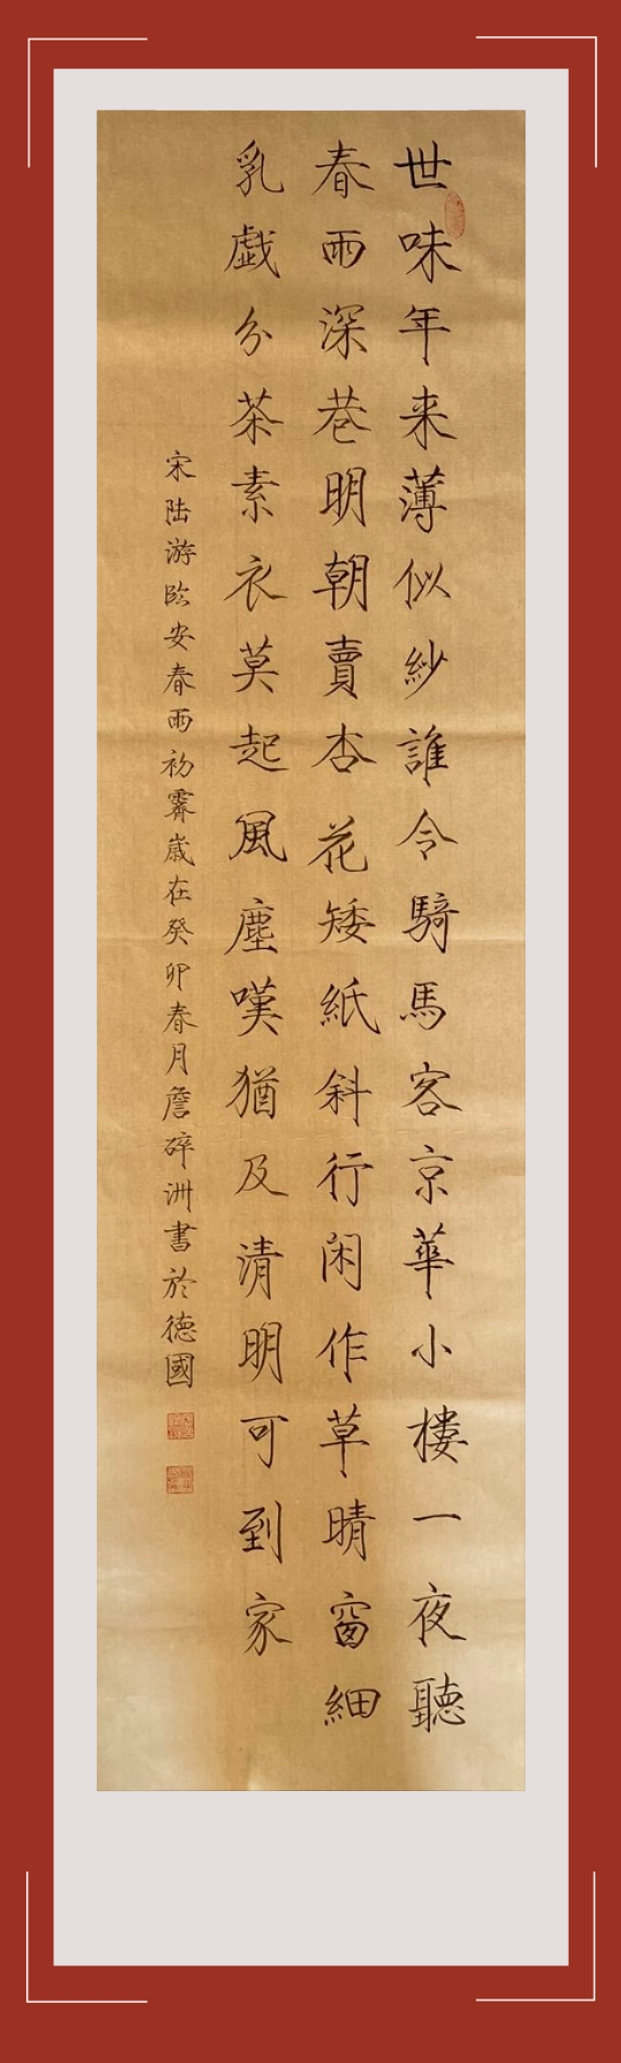 世味年来薄似紗誰令騎馬客京華小樓一夜聽
春雨深巷明朝賣杏花矮紙斜行闲作草晴窗細
乳戯分茶素衣莫起風塵嘆猶及清明可到家
宋陆游臨安春雨初霽歲在癸卯春月詹碎洲書於德國